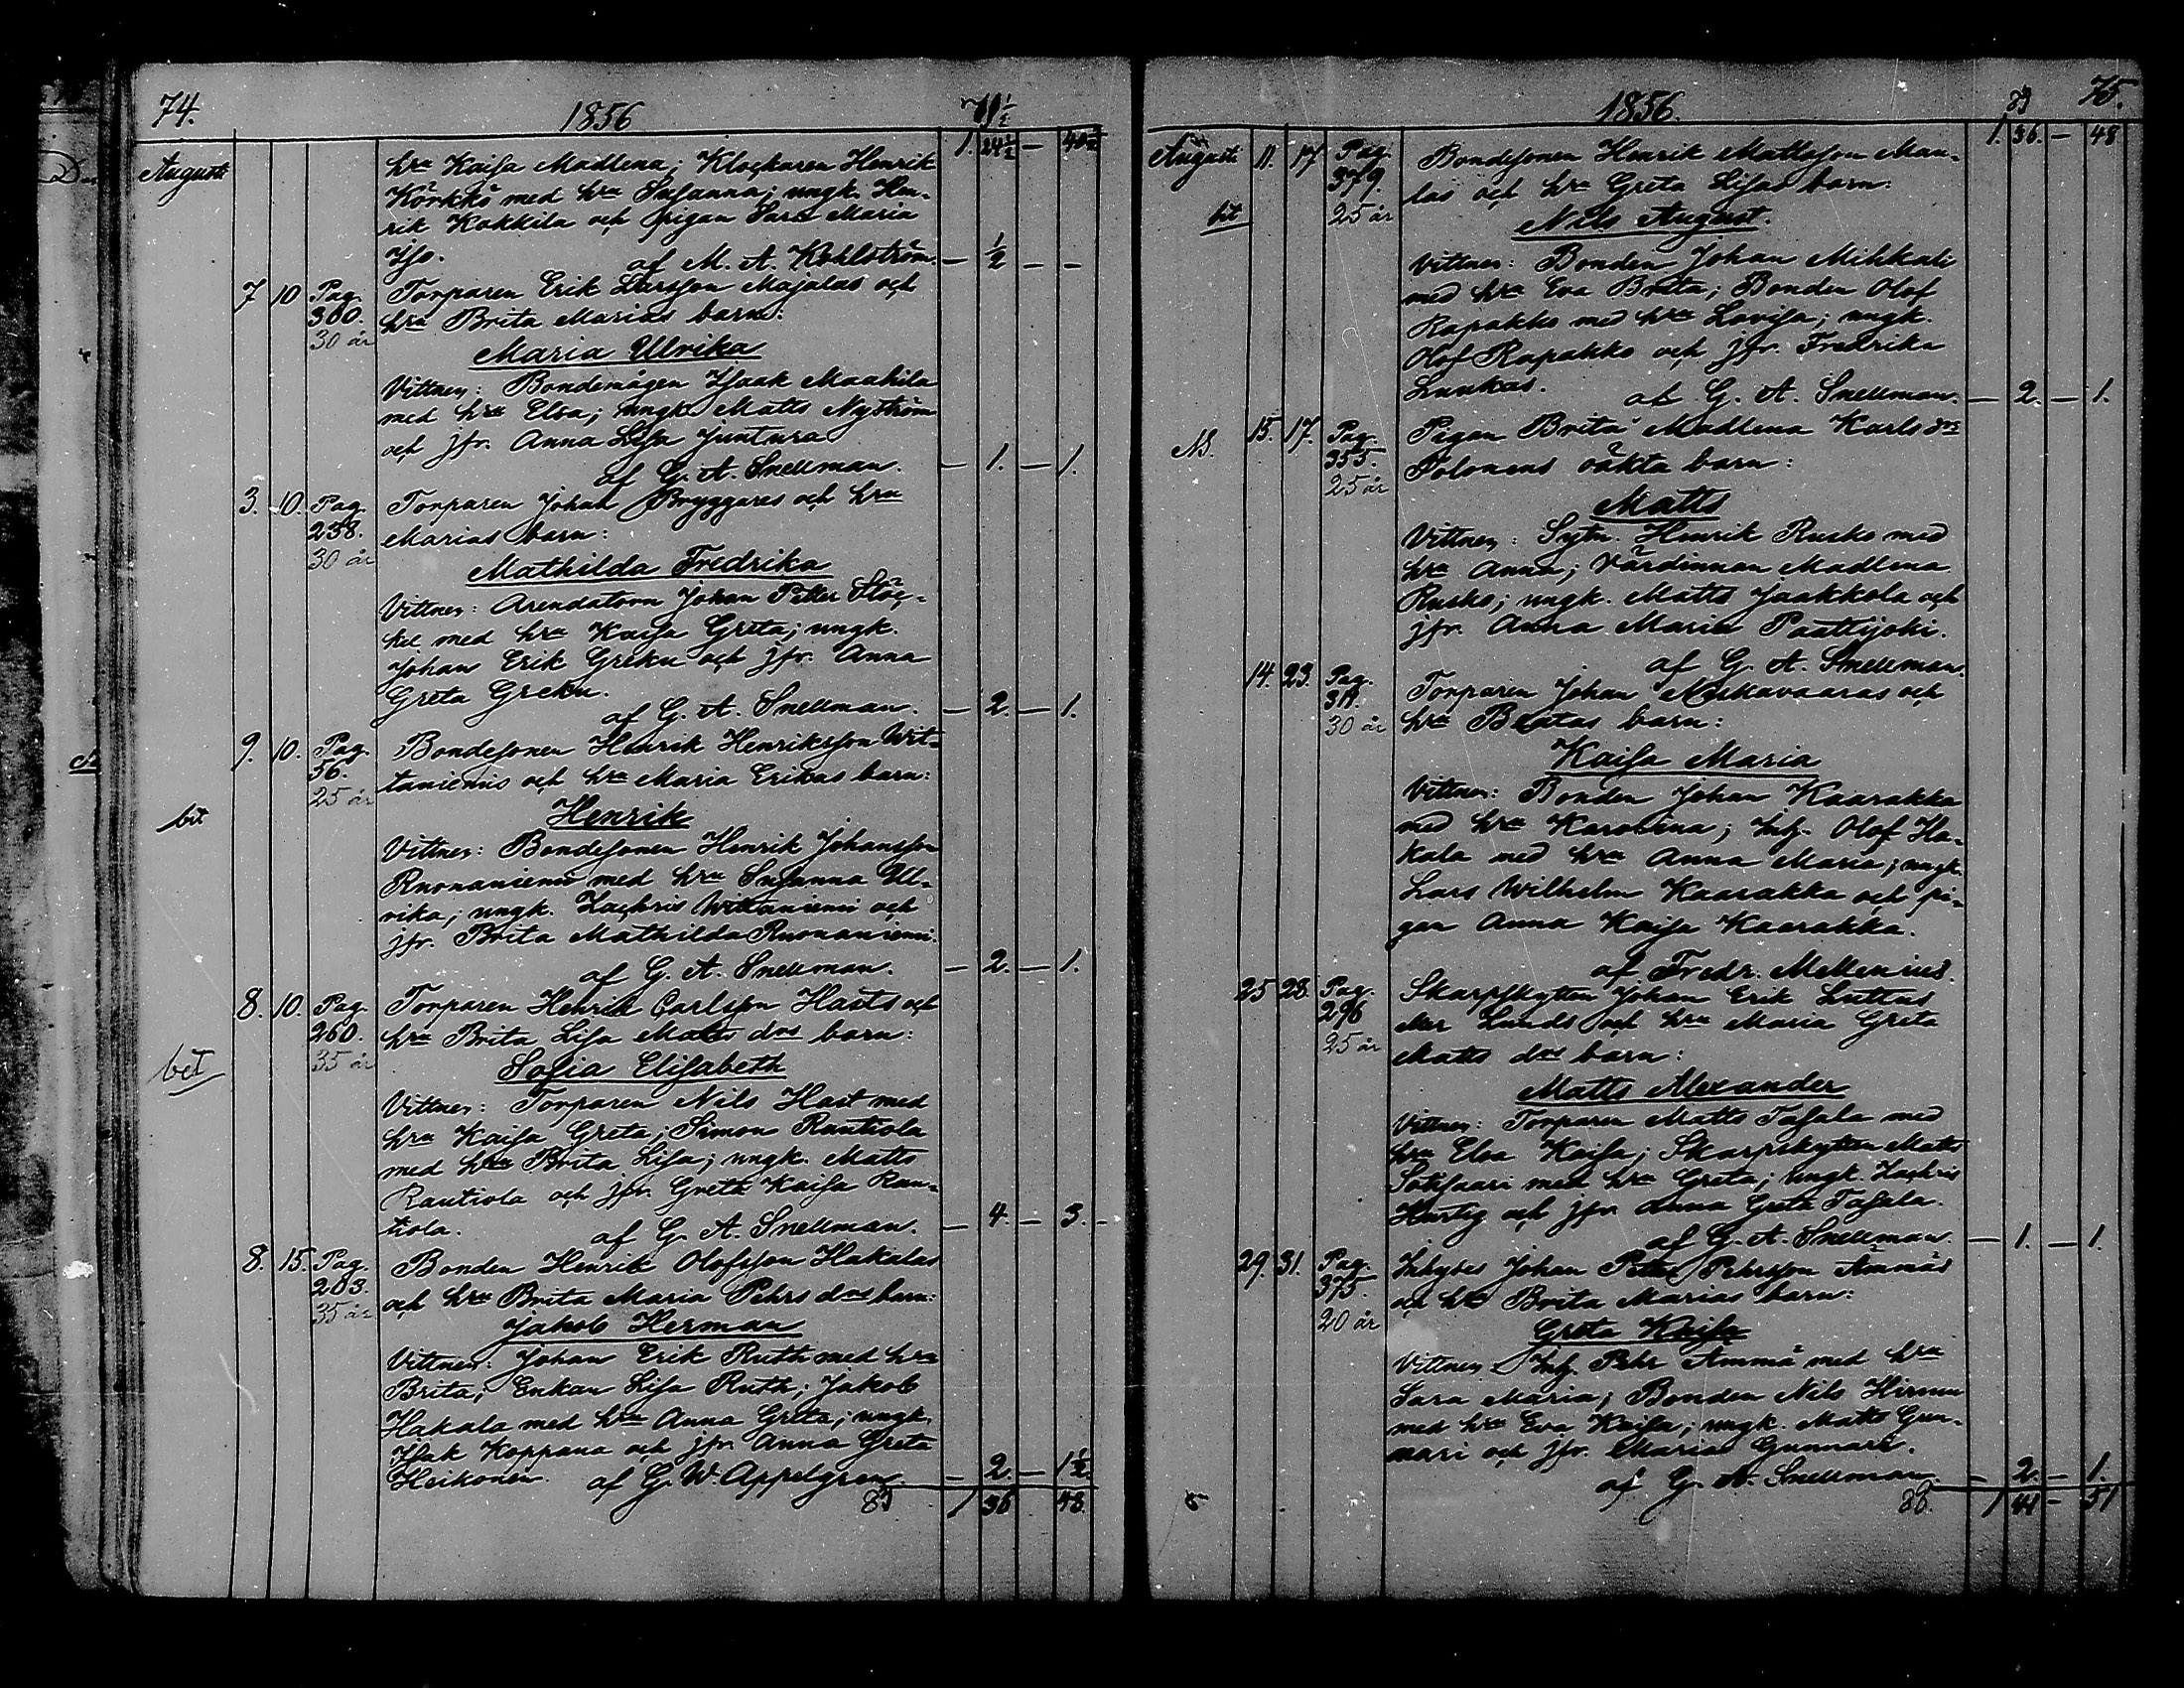 74.
1856
Augusti
1. 24½ — 40½
hru Kaisa Madlena; Klockaren Henrik
Körkkö med hru Susanna; ungk. Hen-
rik Kokkila och pigan Sara Maria
Iso. af M. A. Kohlström. — ½ — —
7 10 Pag. 300. 30 år
Torparen Erik Larsson Majalas och
hru Brita Marias barn:
Maria Ulrika
Vittnen: Bondemågen Isaak Maahila
med hru Elsa; ungk. Matts Nyström
och jfr. Anna Lisa Juntura
af G. A. Snellman. — 1. — 1.
3. 10. Pag. 238. 30 år
Torparen Johan Bryggares och hru
Marias barn:
Mathilda Fredrika
Vittnen: Arendatorn Johan Petter Stöc-
kel med hru Kaisa Greta; ungk.
Johan Erik Greku och jfr. Anna
Greta Greku.
af G. A. Snellman. — 2. — 1.
9. 10. Pag. 56. 25 år
Bondesonen Henrik Henriksson Wit-
taniemis och hru Maria Erikas barn:
bet
Henrik
Vittnen: Bondesonen Henrik Johansson
Ruonaniemi med hru Susanna Ul-
rika; ungk. Zachris Wittaniemi och
jfr. Brita Mathilda Ruonaniemi.
af G. A. Snellman. — 2. — 1.
8. 10. Pag. 260. 35 år
Torparen Henrik Carlsson Hasts och
hru Brita Lisa Matts drs barn:
bet
Sofia Elisabeth
Vittnen: Torparen Nils Hast med
hru Kaisa Greta; Simon Rautiola
med hru Brita Lisa; ungk. Matts
Rautiola och jfr. Greta Kaisa Rau-
tiola. af G. A. Snellman. — 4. — 3. —
8. 15. Pag. 203. 35 år
Bonden Henrik Olofsson Hakalas
och hru Brita Maria Pehrs drs barn:
Jakob Herman
Vittnen: Johan Erik Ruth med hru
Brita; Enkan Lisa Ruth; Jakob
Hakala med hru Anna Greta; ungk.
Isak Koppana och jfr. Anna Greta
Heikonen. af G. W. Appelgren — 2. — 1½
83 1 36 48.
1856.
83
75.
1. 36. — 48
Augusti 11. 17 Pag. 379. 25 år
Bondesonen Henrik Mattsson Mau-
las och hru Greta Lisas barn:
bet
Nils August.
Vittnen: Bonden Johan Mihkali
med hru Eva Brita; Bonden Olof
Rapakko med hru Lovisa; ungk.
Olof Rapakko och jfr. Fredrika
Luukas. af G. A. Snellman. — 2. — 1.
15. 17. Pag. 355. 25 år
Pigan Brita Madlena Karls drs
Tolonens oäkta barn:
Matts
Vittnen: Sytn. Henrik Rusko med
hru Anna; Värdinnan Madlena
Rusko; ungk. Matts Jaakkola och
jfr. Anna Maria Paattijoki.
af G. A. Snellman.
14. 23. Pag. 311. 30 år
Torparen Johan Niskavaaras och
hru Beatas barn:
Kaisa Maria
Vittnen: Bonden Johan Kaarakka
med hru Karolina; Inh. Olof Ha-
kala med hru Anna Maria; ungk.
Lars Wilhelm Kaarakka och pi-
gan Anna Kaisa Kaarakka.
af Fredr. Mellenius.
25 28. Pag. 296 25 år
Skarpskytten Johan Erik Luttus
eller Lunds och hru Maria Greta
Matts drs barn:
Matts Alexander
Vittnen: Torparen Matts Tasala med
hru Elsa Kaisa; Skarpskytten Matts
Sotisaari med hru Greta; ungk. Zachris
Hurtig och jfr. Anna Greta Tasala.
af G. A. Snellman. — 1. — 1.
29. 31. Pag. 375. 20 år
Inhyses Johan Petter Pehrsson Ämmäs
och hru Brita Marias barn:
Greta Kaisa
Vittnen: Inh. Pehr Ämmä med hru
Sara Maria; Bonden Nils Hirmu
med hru Eva Kaisa; ungk. Matts Gun-
nari och jfr. Maria Gunnari.
af G. A. Snellman. — 2. — 1.
5
88. 1 41 — 51